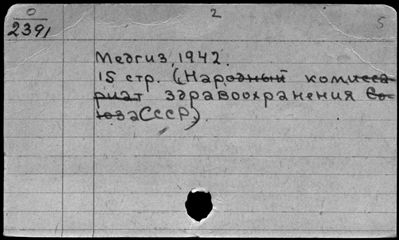 0
2391
2
5
Медгиз, 1942.
15 стр. (Народный комисса-
риат здравоохранения Со-
юза СССР)